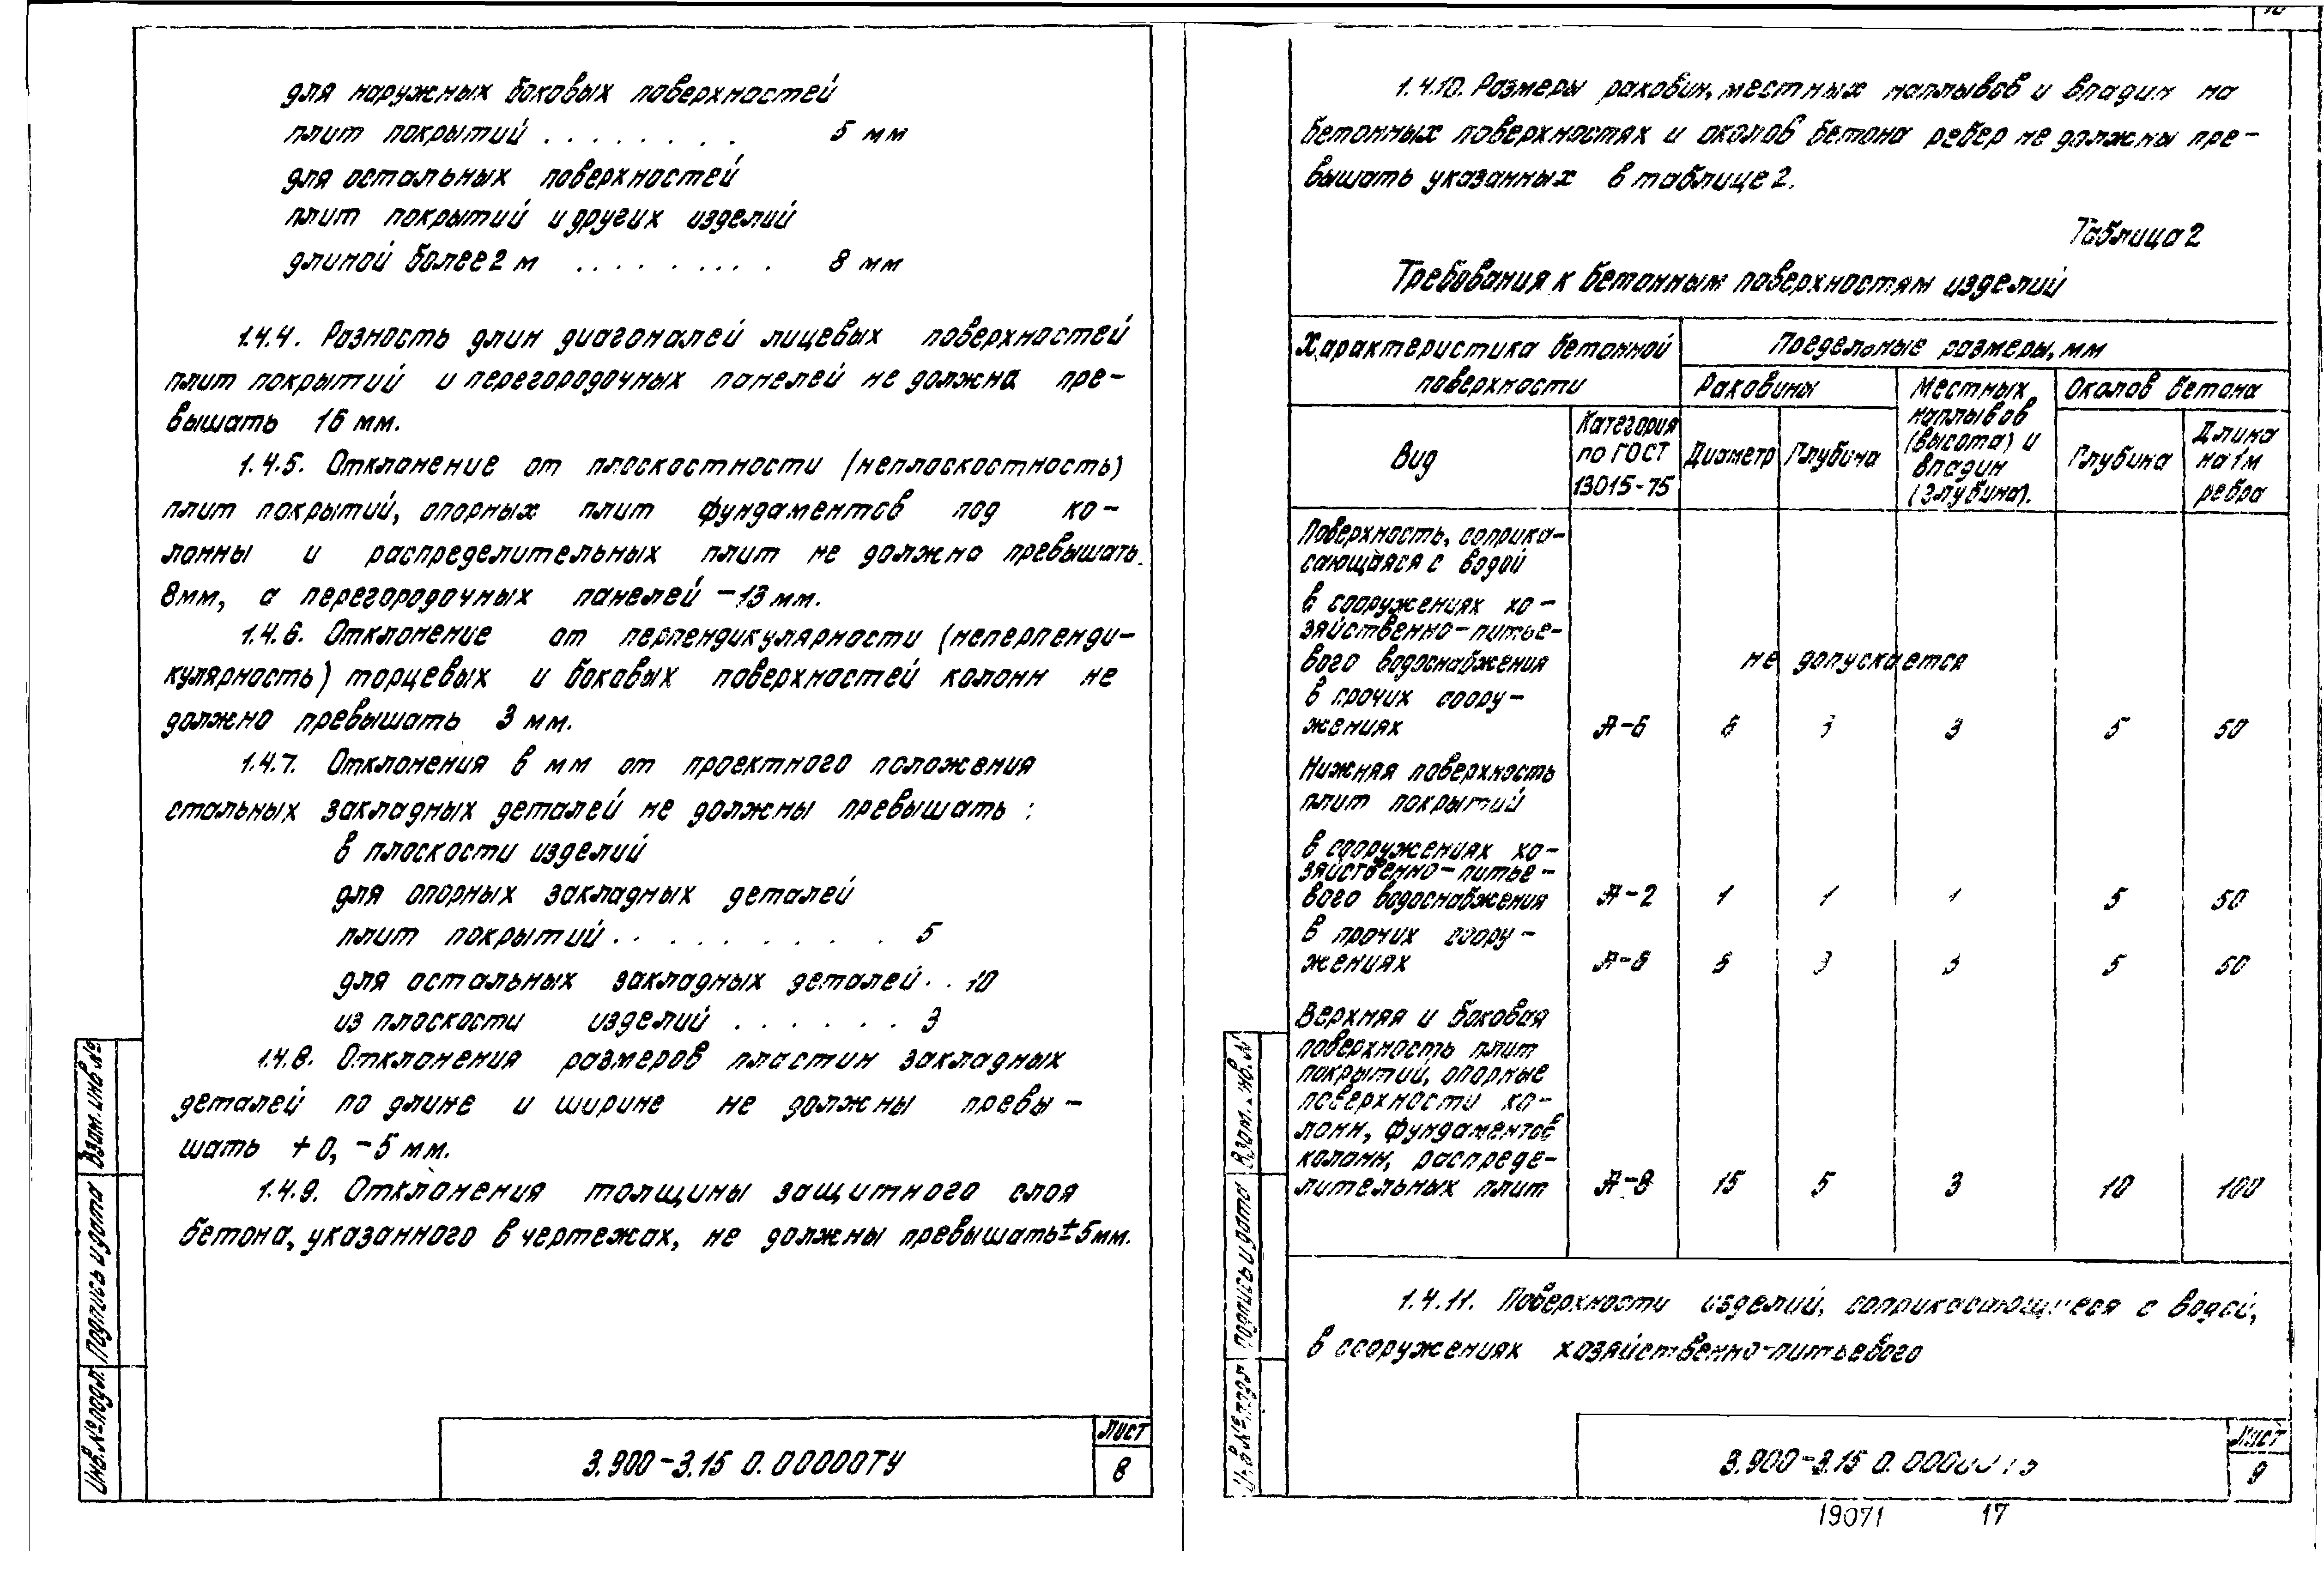 для наружных боковых поверхностей
плит покрытий . . . . . . . . 5 мм
для остальных поверхностей
плит покрытий и других изделий
длиной более 2 м . . . . . . . . . 8 мм
1.4.4. Разность длин диагоналей лицевых поверхностей
плит покрытий и перегородочных панелей не должна пре-
вышать 16 мм.
1.4.5. Отклонение от плоскостности (неплоскостность)
плит покрытий, опорных плит фундаментов под ко-
лонны и распределительных плит не должно превышать
8мм, а перегородочных панелей - 13 мм.
1.4.6. Отклонение от перпендикулярности (неперпенди-
кулярность) торцевых и боковых поверхностей колонн не
должно превышать 3 мм.
1.4.7. Отклонения в мм от проектного положения
стальных закладных деталей не должны превышать :
в плоскости изделий
для опорных закладных деталей
плит покрытий . . . . . . . . . 5
для остальных закладных деталей . . 10
из плоскости изделий . . . . . . 3
1.4.8. Отклонения размеров пластин закладных
деталей по длине и ширине не должны превы-
шать +0, -5 мм.
1.4.9. Отклонения толщины защитного слоя
бетона, указанного в чертежах, не должны превышать ±5мм.
Взам. инв №
Подпись и дата
Инв. № подл.
3.900-3.15 0.00000ТУ
Лист
8
1.4.10. Размеры раковин, местных наплывов и впадин на
бетонных поверхностях и околов бетона ребер не должны пре-
вышать указанных в таблице 2.
Таблица 2
Требования к бетонным поверхностям изделий
Характеристика бетонной поверхности
Предельные размеры, мм
Вид
Категория по ГОСТ 13015-75
Раковины
Диаметр
Глубина
Местных наплывов (высота) и впадин (глубина).
Околов бетона
Глубина
Длина на 1м ребра
Поверхность, соприка-
сающаяся с водой
в сооружениях хо-
зяйственно-питье-
вого водоснабжения не допускается
в прочих соору-
жениях А-6 6 3 3 5 50
Нижняя поверхность
плит покрытий
в сооружениях хо-
зяйственно-питье-
вого водоснабжения А-2 1 1 1 5 50
в прочих соору-
жениях А-6 3 5 50
Верхняя и боковая
поверхность плит
покрытий, опорные
поверхности ко-
лонн, фундаментов
колонн, распреде-
лительных плит А-8 15 5 3 10 100
1.4.11. Поверхности изделий, соприкасающиеся с водой,
в сооружениях хозяйственно-питьевого
Взам. инв. №
Подпись и дата
Инв № подл
3.900-3.15 0.0000
Лист
9
19071 17